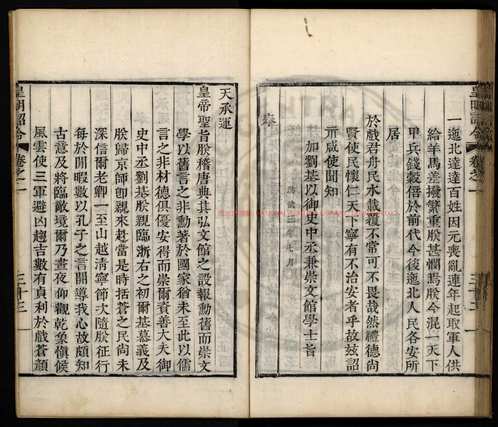 皇明詔令 卷之一
一迤北達達百姓因元喪亂連年起取軍人供
給羊馬差撥繁重朕甚憫焉朕今混一天下
甲兵錢穀倍於前代今後迤北人民各安所
居
於戲君舟民水載覆不常可不畏哉然禮德尚
賢使民懷仁天下寧有不治安者乎故玆詔
示咸使聞知
加劉基以御史中丞兼崇文館學士旨
奉
天承運
皇帝聖旨朕稽唐典其弘文館之設報勳舊而崇文
學以舊言之非勳著於國家猶未至此以儒
言之非材德俱優安得而崇爾資善大夫御
史中丞劉基朕親臨浙右之初爾基慕義及
朕歸京師即親來赴當是時括蒼之民尚未
深信爾老卿一至山越清寧節次隨朕征行
每於閒暇數以孔子之言開導我心故頗知
古意及將臨敵境爾乃晝夜仰觀乾象慎候
風雲使三軍避凶趨吉數有貞利於戲蒼顏
皇明詔令 卷之一 三十三